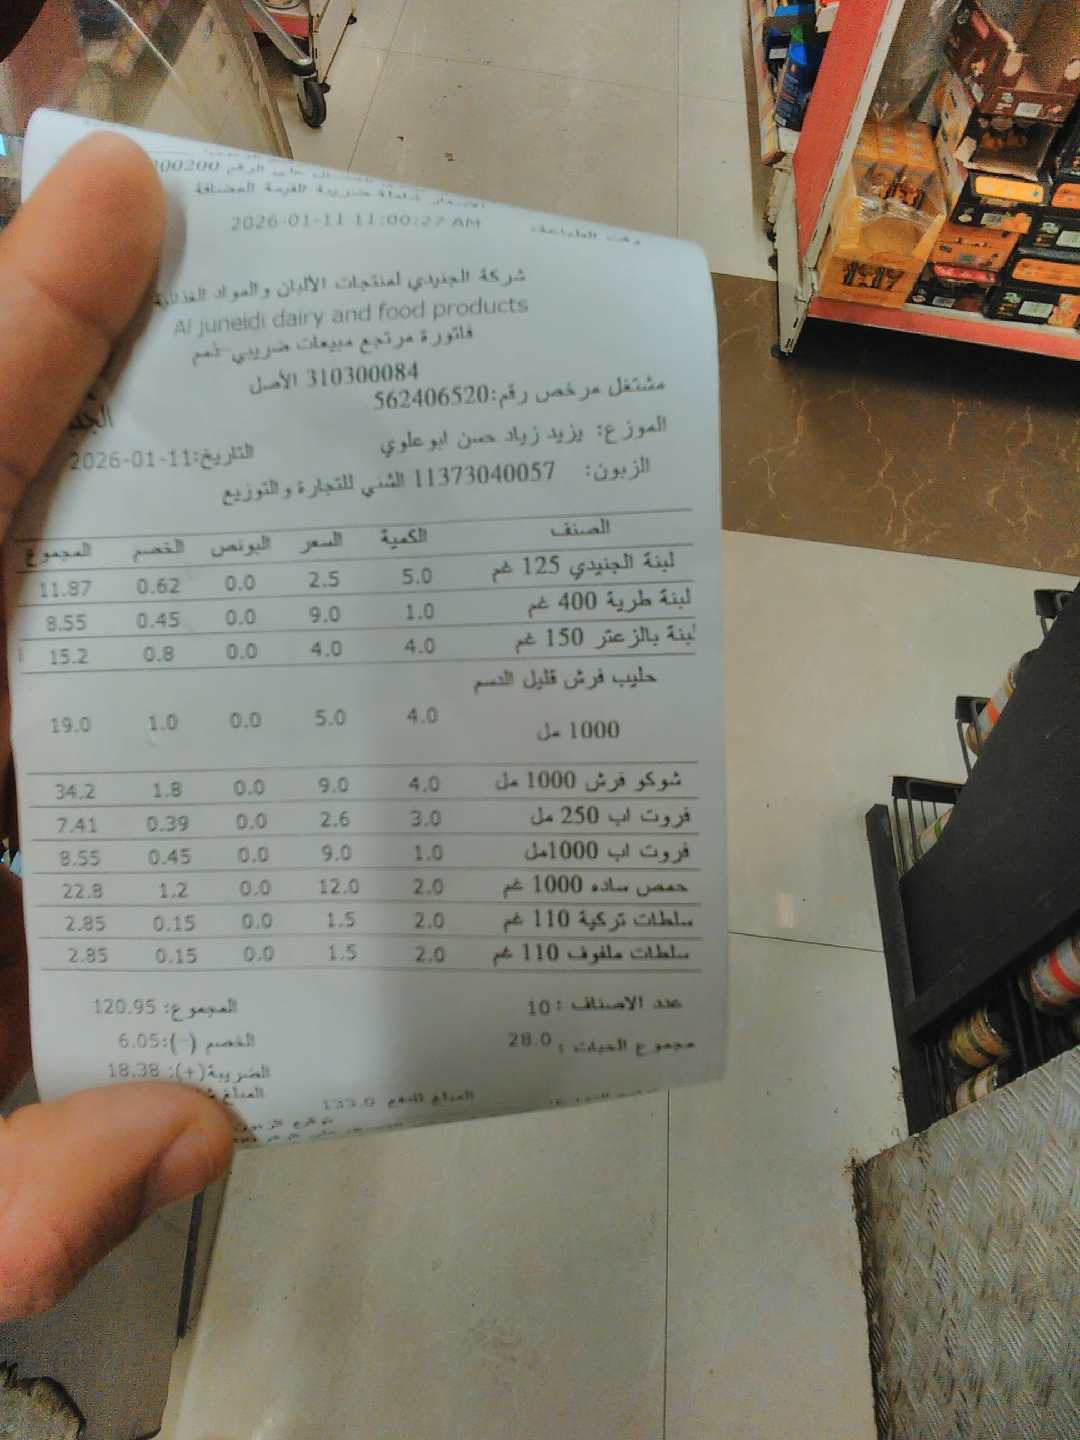 200200
الاسعار شاملة ضريبة القيمة المضافة
وقت الطباعة: 2026-01-11 11:00:27 AM
شركة الجنيدي لمنتجات الألبان والمواد الغذائية
Al juneidi dairy and food products
فاتورة مرتجع مبيعات ضريبي
310300084 الأصل
مشتغل مرخص رقم:562406520
الموزع: يزيد زياد حسن ابو علوي
التاريخ:2026-01-11
الزبون: 11373040057 الشني للتجارة والتوزيع
الصنف الكمية السعر البونص الخصم المجموع
لبنة الجنيدي 125 غم 5.0 2.5 0.0 0.62 11.87
لبنة طرية 400 غم 1.0 9.0 0.0 0.45 8.55
لبنة بالزعتر 150 غم 4.0 4.0 0.0 0.8 15.2
حليب فرش قليل الدسم
1000 مل 4.0 5.0 0.0 1.0 19.0
شوكو فرش 1000 مل 4.0 9.0 0.0 1.8 34.2
فروت اب 250 مل 3.0 2.6 0.0 0.39 7.41
فروت اب 1000مل 1.0 9.0 0.0 0.45 8.55
حمص ساده 1000 غم 2.0 12.0 0.0 1.2 22.8
سلطات تركية 110 غم 2.0 1.5 0.0 0.15 2.85
سلطات ملفوف 110 غم 2.0 1.5 0.0 0.15 2.85
عدد الاصناف : 10 المجموع: 120.95
مجموع الحبات : 28.0 الخصم (-):6.05
الضريبة(+): 18.38
المبلغ للدفع 133.0